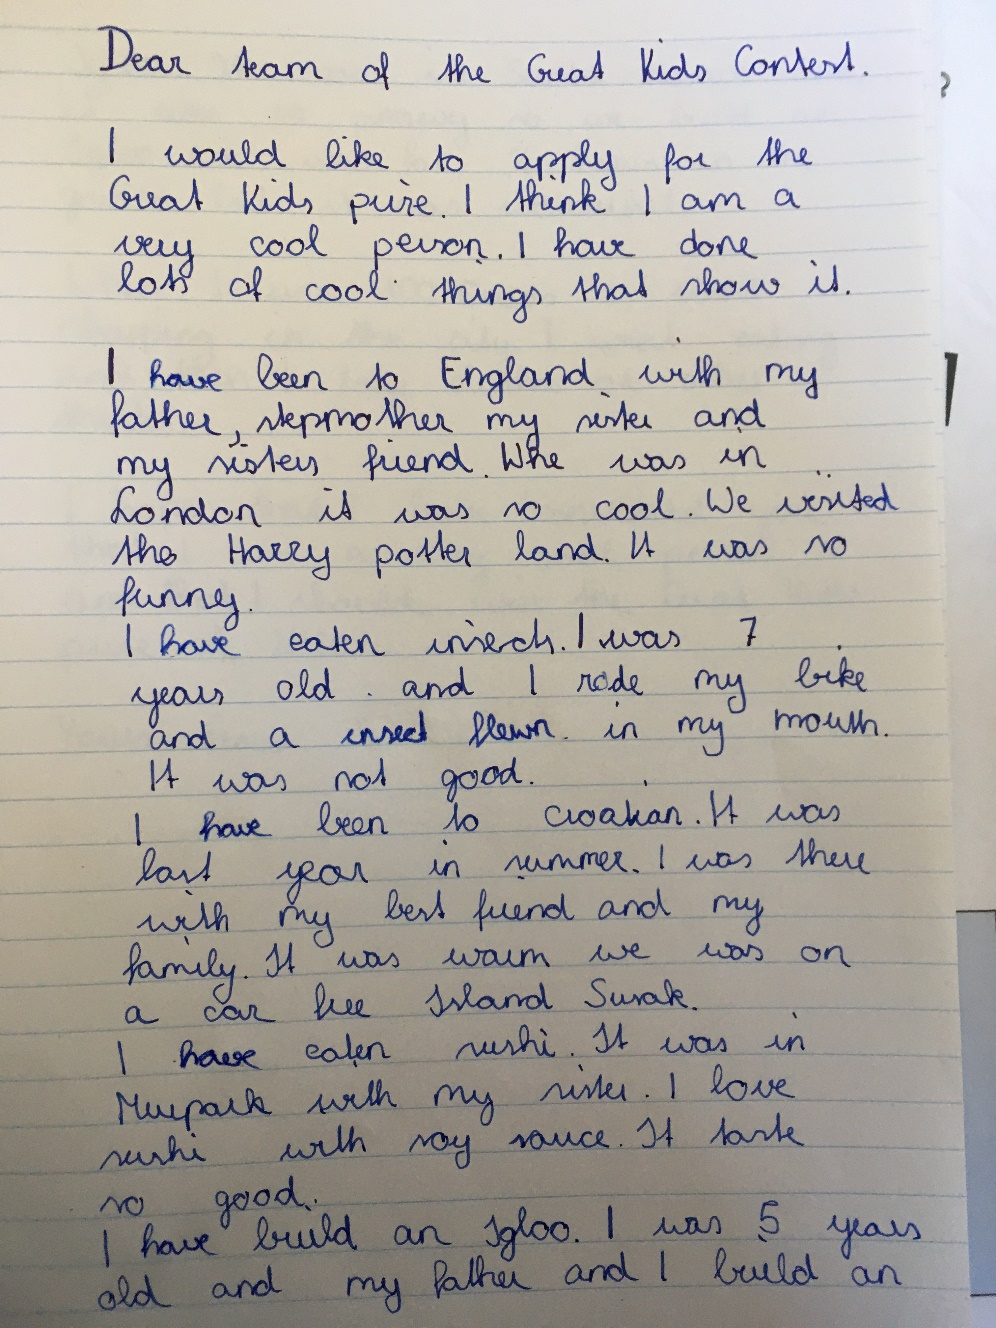 Dear team of the Great Kids Contest.
I would like to apply for the
Great Kids prize. I think I am a
very cool person. I have done
lots of cool things that show it.
I have been to England with my
father, stepmother my sister and
my sisters friend. Whe was in
London it was so cool. We visited
the Harry potter land. It was so
funny.
I have eaten insects. I was 7
years old. and I rode my bike
and a insect flewn in my mouth.
It was not good.
I have been to Croatian. It was
last year in summer. I was there
with my best friend and my
family. It was warm we was on
a car free Island Susak.
I have eaten sushi. It was in
with my sister. I love
sushi with soy sauce. It taste
so good.
I have build an Igloo. I was 5 years
old and my father and I build an